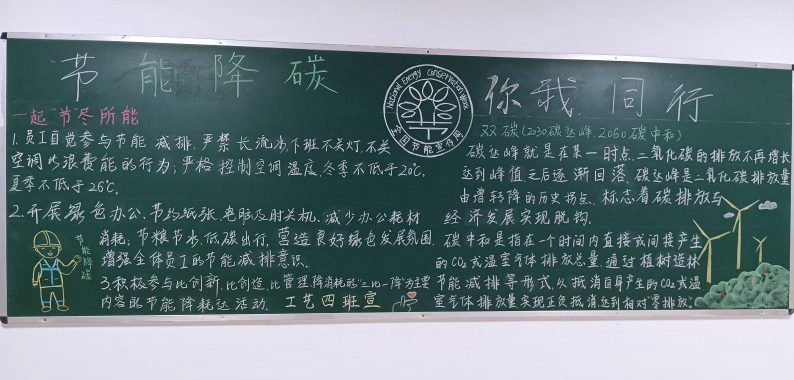 节能降碳
你我同行
National Energy Conservation Week
全国节能宣传周
一起"节"尽所能
1.员工自觉参与节能减排,严禁长流水,下班不关灯,不关
空调的浪费能的行为;严格控制空调温度,冬季不低于20℃,
夏季不低于26℃.
2.开展绿色办公,节约纸张,电脑及时关机,减少办公耗材
消耗;节粮节水,低碳出行,营造良好绿色发展氛围,
增强全体员工的节能减排意识.
3.积极参与比创新,比创造,比管理,降消耗的"三比一降"为主要
内容的节能降耗达活动.
工艺四班宣
节能降碳
双碳(2030碳达峰,2060碳中和)
碳达峰就是在某一时点,二氧化碳的排放不再增长
达到峰值之后逐渐回落.碳达峰是二氧化碳排放量
由增转降的历史拐点、标志着碳排放与
经济发展实现脱钩.
碳中和是指在一个时间内直接或间接产生
的CO2或温室气体排放总量,通过植树造林
节能减排等形式,以抵消自身产生的CO2或温
室气体排放量,实现正负抵消,达到相对"零排放".